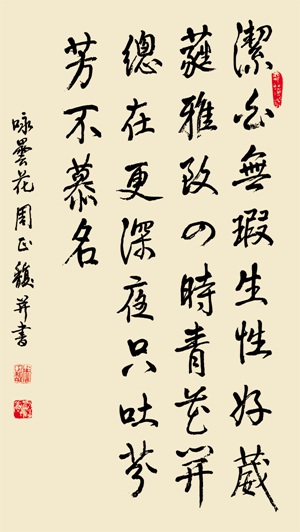 潔白無瑕生性好葳
蕤雅致四時青花開
總在更深夜只吐芬
芳不慕名
咏曇花周正馥并書